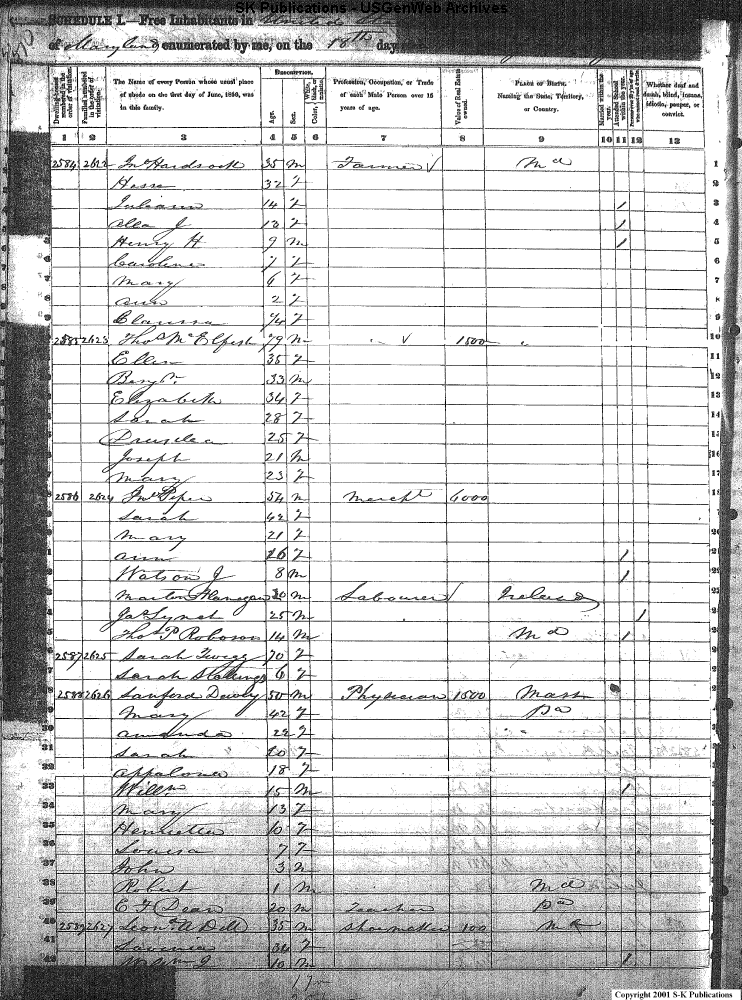 SK Publications - USGenWeb Archives
SCHEDULE I.—Free Inhabitants in United
of Maryland enumerated by me, on the 18th day
Dwelling-houses numbered in the order of visitation.
Families numbered in the order of visitation.
The Name of every Person whose usual place of abode on the first day of June, 1850, was in this family.
DESCRIPTION.
Age.
Sex.
Color, White, black, or mulatto.
Profession, Occupation, or Trade of each Male Person over 15 years of age.
Value of Real Estate owned.
PLACE OF BIRTH. Naming the State, Territory, or Country.
Married within the year.
Attended School within the year.
Whether deaf and dumb, blind, insane, idiotic, pauper, or convict.
1 2 3 4 5 6 7 8 9 10 11 12 13
2584 2622 Jno Hardsock 35 m Farmer Md
32 f
Juliann 14 f /
Alla J f /
Henry H 9 m /
Caroline 7 f
Mary 6 f
Ann 2 f
Clarissa f
2585 2623 Thos McElfish 79 m " 1500 "
Ellen 35 f
33 m
Elizabeth 34 f
Sarah 28 f
Drusilla 25 f
Joseph 21 m
Mary 23 f
2586 2624 Jno Piper 54 m Mercht 6000
Sarah 42 f
Mary 21 f
Ann 16 f /
Watson J 8 m /
Martin Flanegan 30 m Labourer Ireland
Jas Lynch 25 m /
Thos P Roboson 14 m Md /
2587 2625 Sarah Twigg 70 f
Sarah 6 f
2588 2626 Sanford 50 m Physician 1500 Mass
Mary 42 f Pa
Amanda 22 f
Sarah 20 f
Appalona 18 f
Willm 15 m /
Mary 13 f
Henrietta 10 f
Louisa 7 f
John 3 m
Robert 1 m Md
E F Dean 20 m Teacher Pa
2589 2627 35 m Shoemaker 100 Md
Savinia f
10 m /
Copyright 2001 S-K Publications